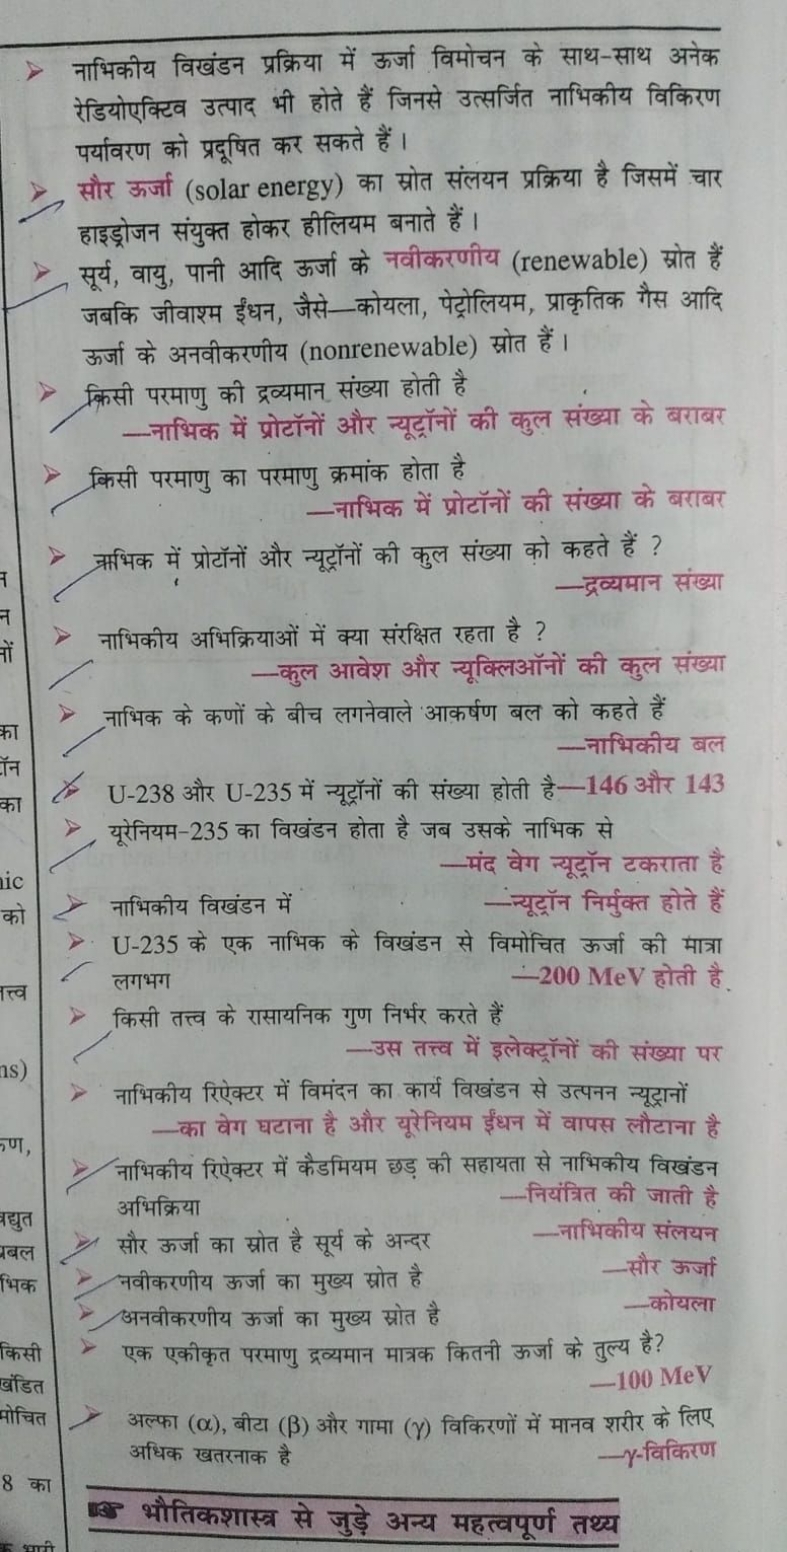 ➤ नाभिकीय विखंडन प्रक्रिया में ऊर्जा विमोचन के साथ-साथ अनेक
रेडियोएक्टिव उत्पाद भी होते हैं जिनसे उत्सर्जित नाभिकीय विकिरण
पर्यावरण को प्रदूषित कर सकते हैं।
➤ सौर ऊर्जा (solar energy) का स्रोत संलयन प्रक्रिया है जिसमें चार
हाइड्रोजन संयुक्त होकर हीलियम बनाते हैं।
➤ सूर्य, वायु, पानी आदि ऊर्जा के नवीकरणीय (renewable) स्रोत हैं
जबकि जीवाश्म ईंधन, जैसे—कोयला, पेट्रोलियम, प्राकृतिक गैस आदि
ऊर्जा के अनवीकरणीय (nonrenewable) स्रोत हैं।
➤ किसी परमाणु की द्रव्यमान संख्या होती है
—नाभिक में प्रोटॉनों और न्यूट्रॉनों की कुल संख्या के बराबर
➤ किसी परमाणु का परमाणु क्रमांक होता है
—नाभिक में प्रोटॉनों की संख्या के बराबर
➤ नाभिक में प्रोटॉनों और न्यूट्रॉनों की कुल संख्या को कहते हैं ?
—द्रव्यमान संख्या
➤ नाभिकीय अभिक्रियाओं में क्या संरक्षित रहता है ?
—कुल आवेश और न्यूक्लिऑनों की कुल संख्या
➤ नाभिक के कणों के बीच लगनेवाले आकर्षण बल को कहते हैं
—नाभिकीय बल
➤ U-238 और U-235 में न्यूट्रॉनों की संख्या होती है—146 और 143
➤ यूरेनियम-235 का विखंडन होता है जब उसके नाभिक से
—मंद वेग न्यूट्रॉन टकराता है
➤ नाभिकीय विखंडन में —न्यूट्रॉन निर्मुक्त होते हैं
➤ U-235 के एक नाभिक के विखंडन से विमोचित ऊर्जा की मात्रा
लगभग —200 MeV होती है
➤ किसी तत्त्व के रासायनिक गुण निर्भर करते हैं
—उस तत्त्व में इलेक्ट्रॉनों की संख्या पर
➤ नाभिकीय रिऐक्टर में विमंदन का कार्य विखंडन से उत्पनन न्यूट्रानों
—का वेग घटाना है और यूरेनियम ईंधन में वापस लौटाना है
➤ नाभिकीय रिऐक्टर में कैडमियम छड़ की सहायता से नाभिकीय विखंडन
अभिक्रिया —नियंत्रित की जाती है
➤ सौर ऊर्जा का स्रोत है सूर्य के अन्दर —नाभिकीय संलयन
➤ नवीकरणीय ऊर्जा का मुख्य स्रोत है —सौर ऊर्जा
➤ अनवीकरणीय ऊर्जा का मुख्य स्रोत है —कोयला
➤ एक एकीकृत परमाणु द्रव्यमान मात्रक कितनी ऊर्जा के तुल्य है?
—100 MeV
➤ अल्फा (α), बीटा (β) और गामा (γ) विकिरणों में मानव शरीर के लिए
अधिक खतरनाक है —γ-विकिरण
☞ भौतिकशास्त्र से जुड़े अन्य महत्वपूर्ण तथ्य
का
का
को
ns)
किसी
8 का